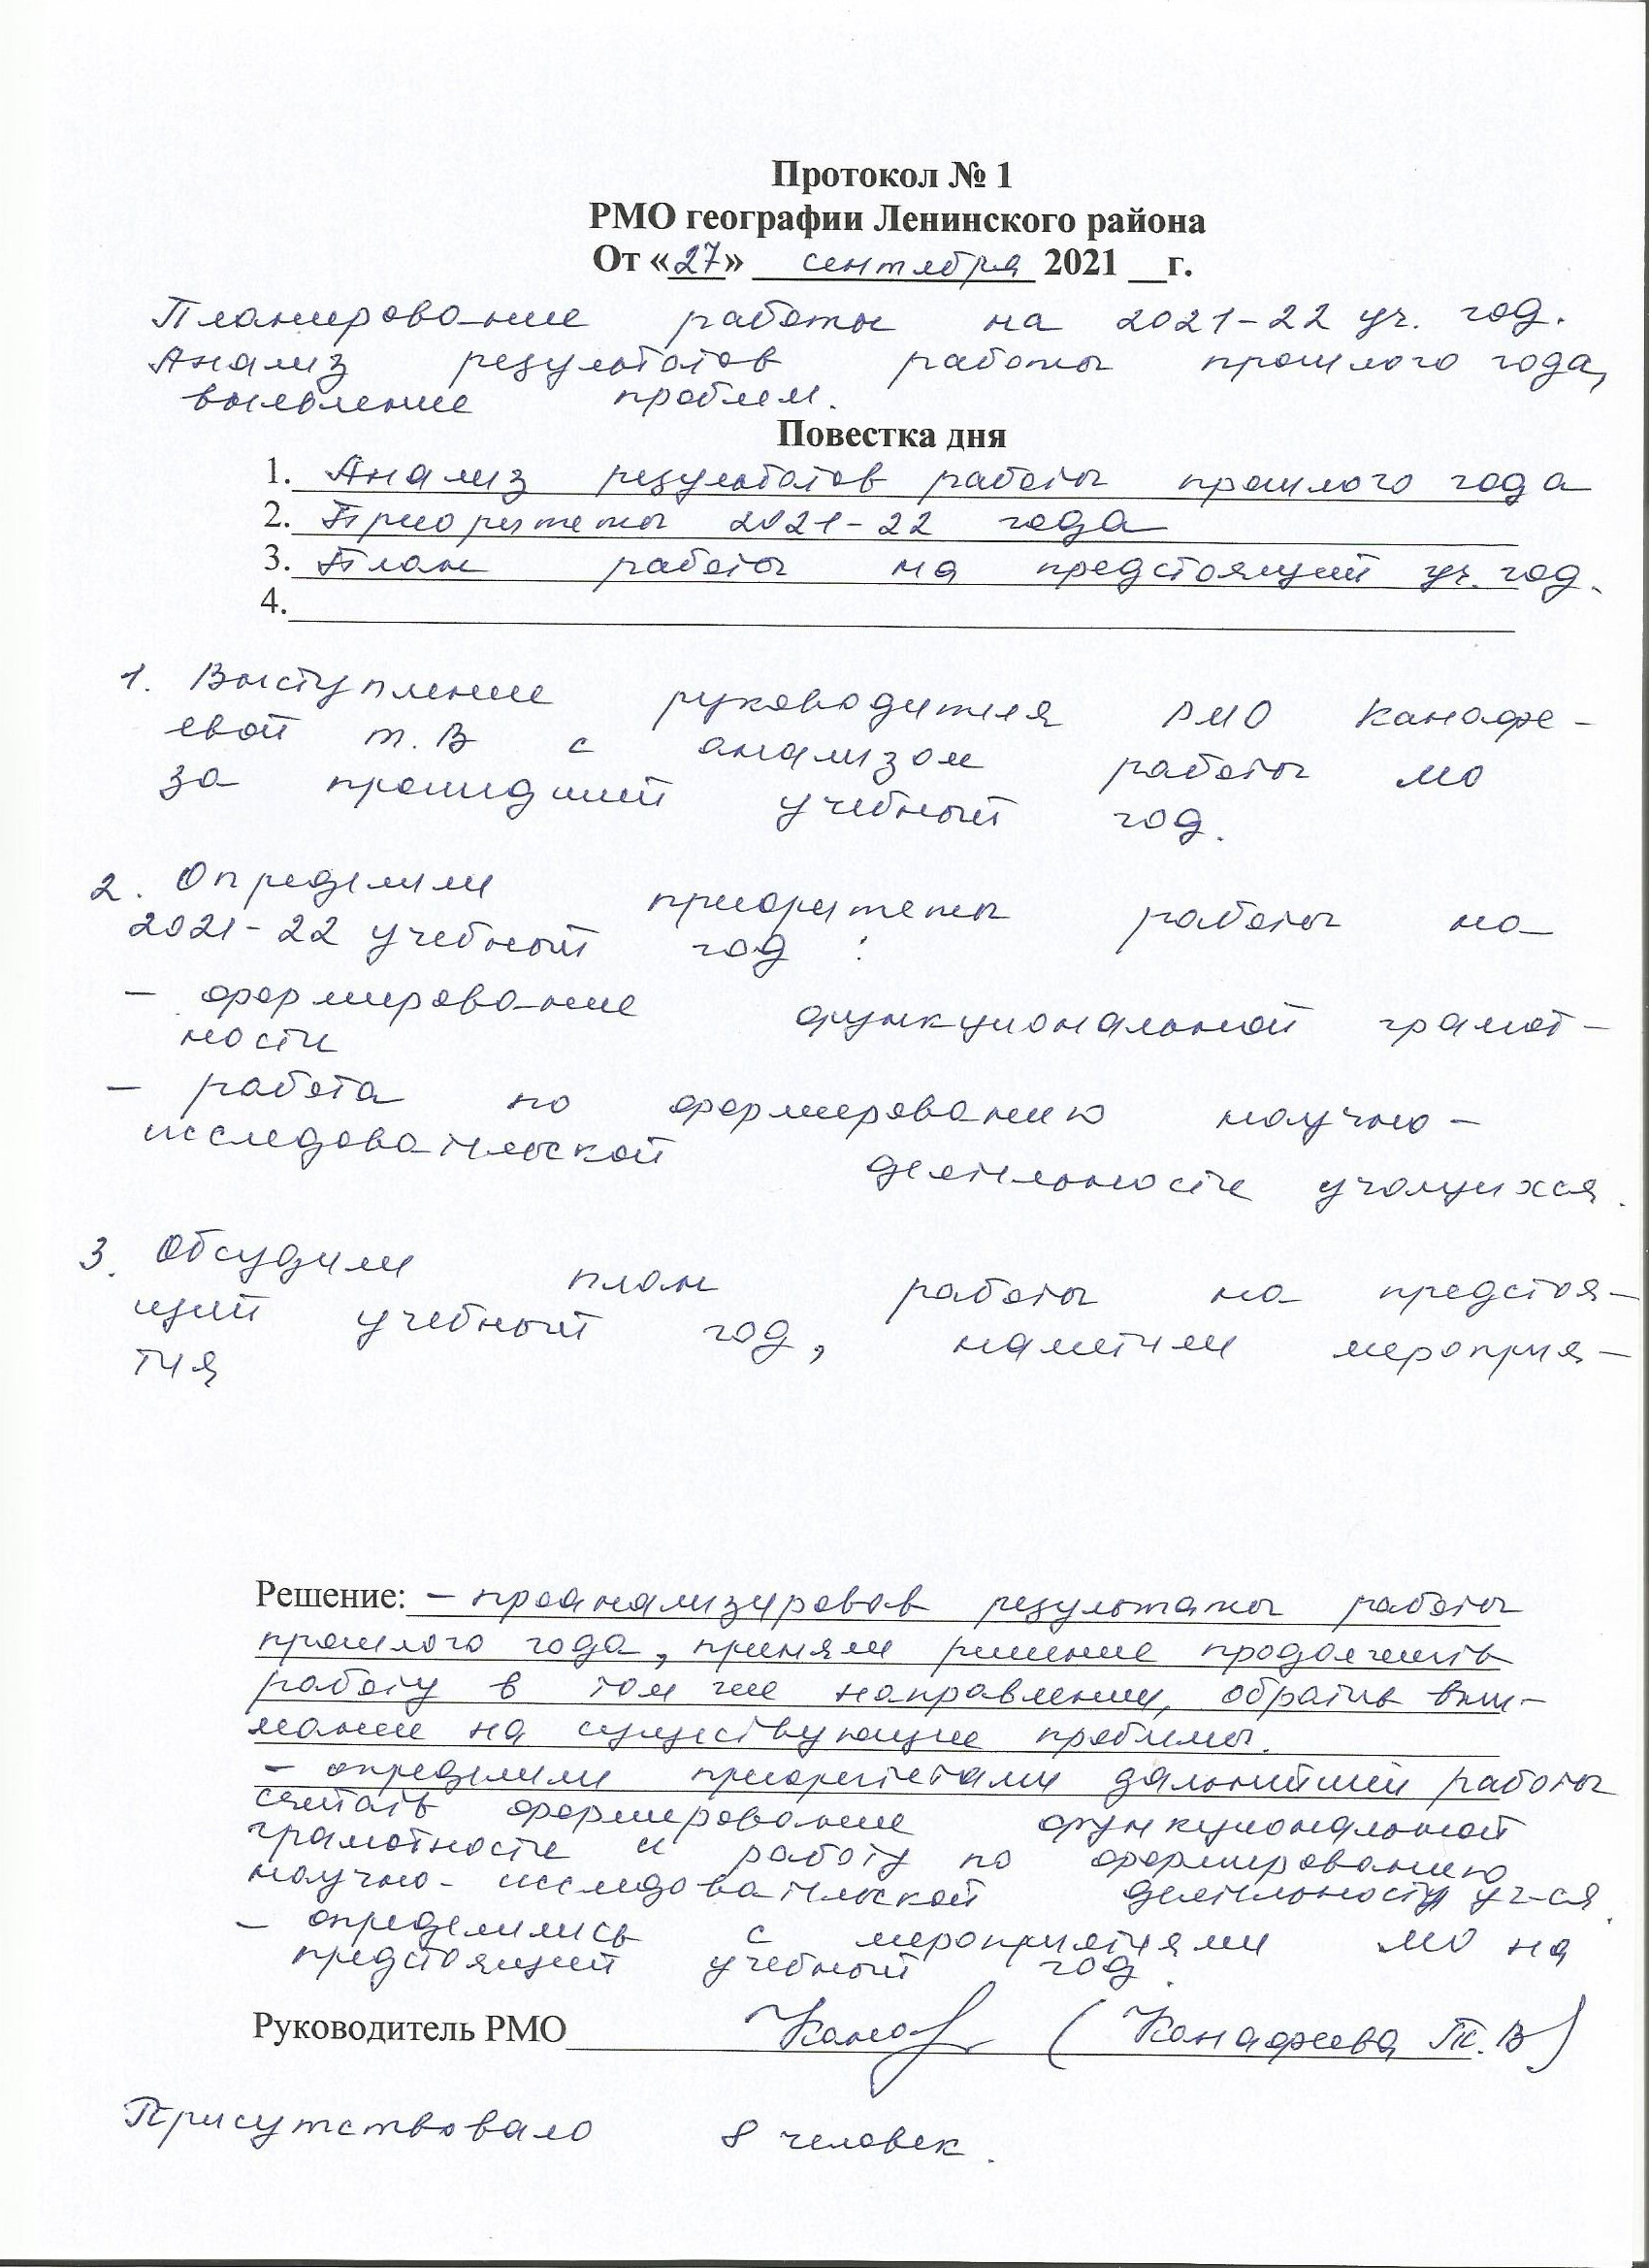 Протокол № 1
РМО географии Ленинского района
От «27» сентября 2021 __г.
Планирование работы на 2021-22 уч. год.
Анализ результатов работы прошлого года,
выявление проблем.
Повестка дня
1. Анализ результатов работы прошлого года
2. Приоритеты 2021-22 года
3. План работы на предстоящий уч. год.
4.
1. Выступление руководителя РМО Канафе-
евой Т.В с анализом работы МО
за прошедший учебный год.
2. Определили приоритеты работы на
2021-22 учебный год :
- формирование функциональной грамот-
ности
- работа по формированию научно-
исследовательской деятельности учащихся.
3. Обсудили план работы на предстоя-
щий учебный год, наметили мероприя-
тия
Решение: - проанализировав результаты работы
прошлого года, приняли решение продолжить
работу в том же направлении, обратив вни-
мание на существующие проблемы.
- определили приоритетами дальнейшей работы
считать формирование функциональной
грамотности и работу по формированию
научно-исследовательской деятельности уч-ся.
- определились с мероприятиями МО на
предстоящий учебный год.
Руководитель РМО (Канафеева Т.В)
Присутствовало 8 человек.